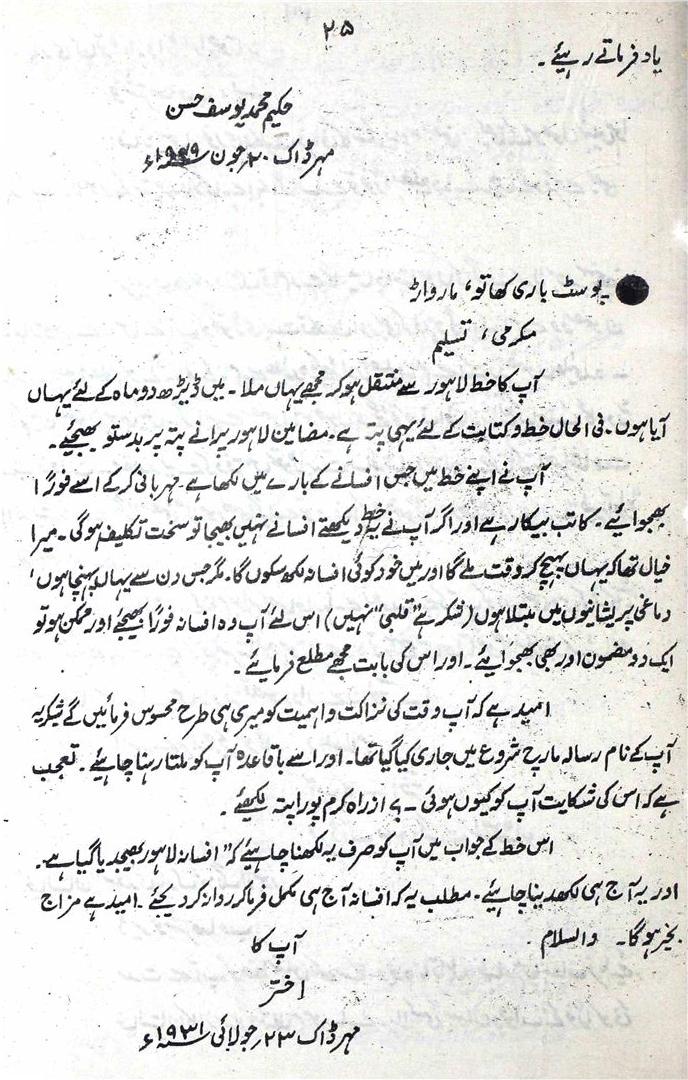 ۲۵
یاد فرماتے رہیئے۔
حکیم محمد یوسف حسن
مہر ڈاک ۲۰ جون ۱۹۲۹ء
پوسٹ باری کھاتو، مارواڑ
مکرمی، تسلیم
آپ کا خط لاہور سے منتقل ہو کر مجھے یہاں ملا۔ میں ڈیڑھ دو ماہ کے لئے یہاں
آیا ہوں۔ فی الحال خط و کتابت کے لئے یہی پتہ ہے۔ مضامین لاہور پرانے پتہ پر بدستور بھیجئے۔
آپ نے اپنے خط میں جس افسانے کے بارے میں لکھا ہے۔ مہربانی کر کے اسے فوراً
بھجوایئے۔ کاتب بیکار ہے اور اگر آپ نے یہ خط دیکھتے افسانے نہیں بھیجا تو سخت تکلیف ہوگی۔ میرا
خیال تھا کہ یہاں پہنچ کر وقت ملے گا اور میں خود کوئی افسانہ لکھ سکوں گا۔ مگر جس دن سے یہاں پہنچا ہوں،
دماغی پریشانیوں میں مبتلا ہوں (شکر ہے "قلبی" نہیں) اس لئے آپ وہ افسانہ فوراً بھیجئے اور ممکن ہو تو
ایک دو مضمون اور بھی بھجوایئے۔ اور اس کی بابت مجھے مطلع فرمایئے۔
امید ہے کہ آپ وقت کی نزاکت و اہمیت کو میری ہی طرح محسوس فرمائیں گے شکریہ
آپ کے نام رسالہ مارچ شروع میں جاری کیا گیا تھا۔ اور اسے باقاعدہ آپ کو ملتا رہنا چاہئے۔ تعجب
ہے کہ اس کی شکایت آپ کو کیوں ہوئی۔ ؟ از راہ کرم پورا پتہ لکھئے۔
اس خط کے جواب میں آپ کو صرف یہ لکھنا چاہیئے کہ "افسانہ لاہور بھیجدیا گیا ہے۔
اور یہ آج ہی لکھدینا چاہیئے۔ مطلب یہ کہ افسانہ آج ہی مکمل فرما کر روانہ کر دیجئے۔ امید ہے مزاج
بخیر ہوگا۔ والسلام۔
آپ کا
اختر
مہر ڈاک ۲۳ جولائی ۱۹۳۱ء